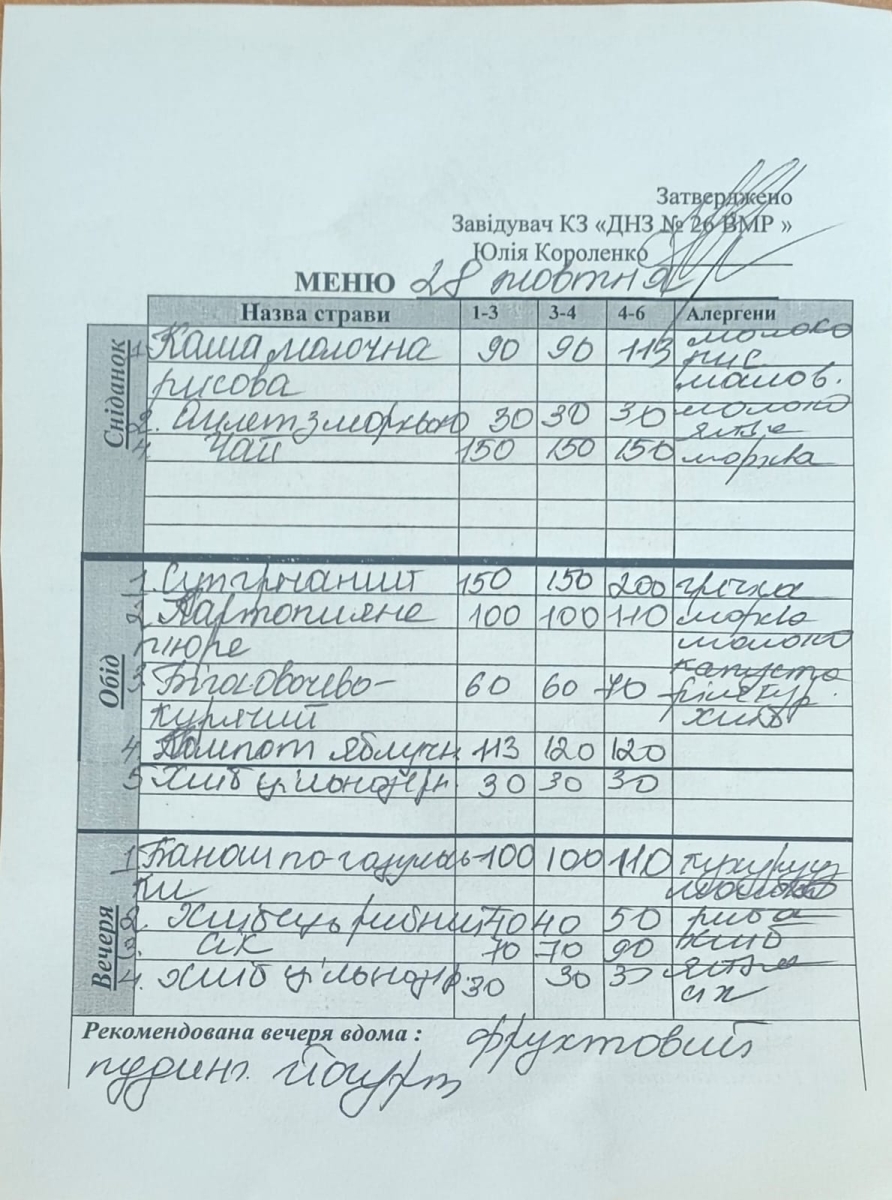 Затверджено
Завідувач КЗ «ДНЗ № 26 ВМР »
Юлія Короленко
МЕНЮ 28 жовтня
Назва страви 1-3 3-4 4-6 Алергени
Сніданок
1. Каша молочна 90 90 113 молоко
рисова рис
маслов.
2. Омлет з морквою 30 30 30 молоко
яйце
4. Чай 150 150 150 морква
Обід
1. Суп гречаний 150 150 200 гречка
2. Картопляне 100 100 110 морква
пюре молоко
капуста
3. Бігос овочево- 60 60 70 філе кур.
курячий хліб
4. Компот яблучн 113 120 120
5. Хліб цільнозерн 30 30 30
Вечеря
1. Банош по-гацульсь 100 100 110 кукурудз
ки молоко
2. Хлібець рибний 40 40 50 риба
3. сік 70 70 90 хліб
4. Хліб цільнозер. 30 30 30 яйце
сік
Рекомендована вечеря вдома : фруктовий
пудинг. йогурт